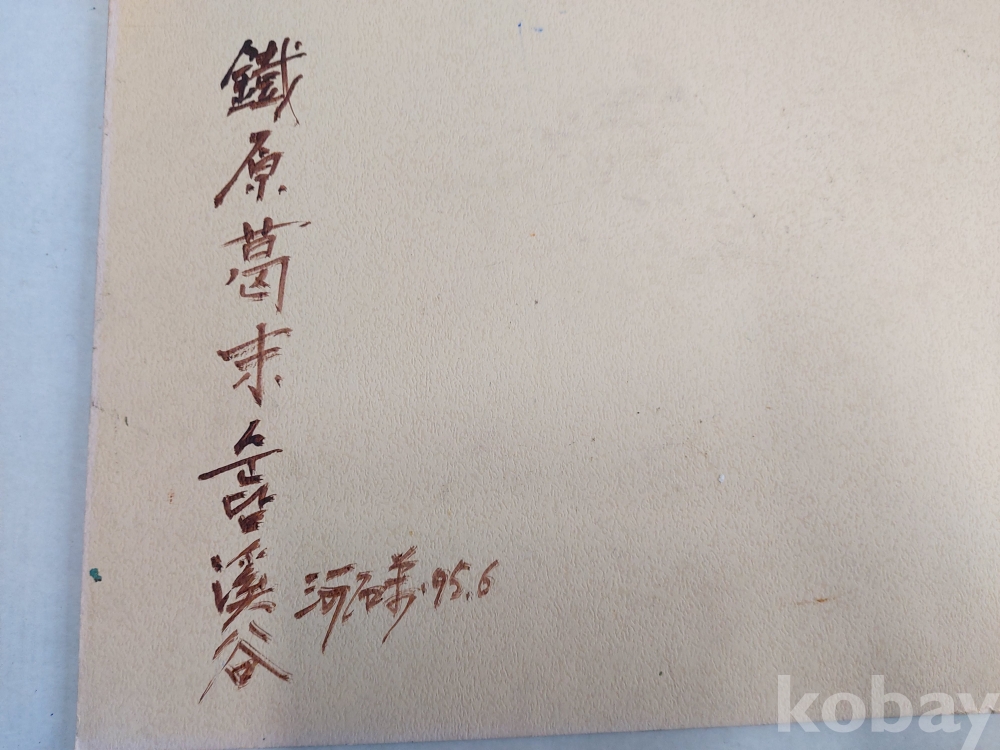 鐵原葛末순담溪谷
河石 '95.6
kobay